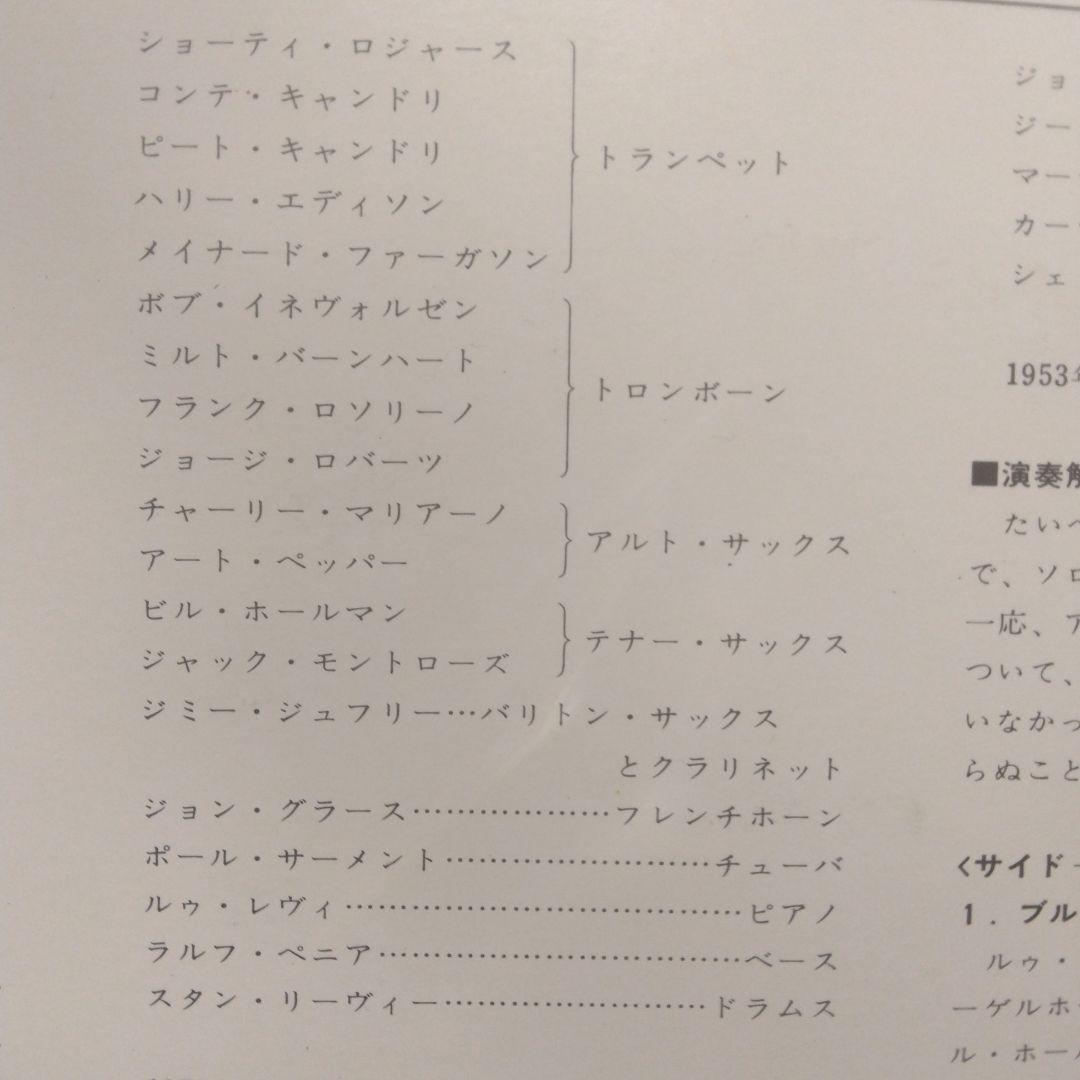 ショーティ・ロジャース
コンテ・キャンドリ
ピート・キャンドリ
ハリー・エディソン
メイナード・ファーガソン
トランペット
ボブ・イネヴォルゼン
ミルト・バーンハート
フランク・ロソリーノ
ジョージ・ロバーツ
トロンボーン
チャーリー・マリアーノ
アート・ペッパー
アルト・サックス
ビル・ホールマン
ジャック・モントローズ
テナー・サックス
ジミー・ジュフリー…バリトン・サックス
とクラリネット
ジョン・グラース………………フレンチホーン
ポール・サーメント……………………チューバ
ルゥ・レヴィ………………………………ピアノ
ラルフ・ペニア……………………………ベース
スタン・リーヴィー……………………ドラムス
ジョ
ジー
マー
カー
シェ
1953年
■演奏解
たいへ
で、ソロ
一応、ア
ついて、
いなかっ
らぬこと
<サイド
1．ブル
ルゥ・
ーゲルホ
ル・ホー